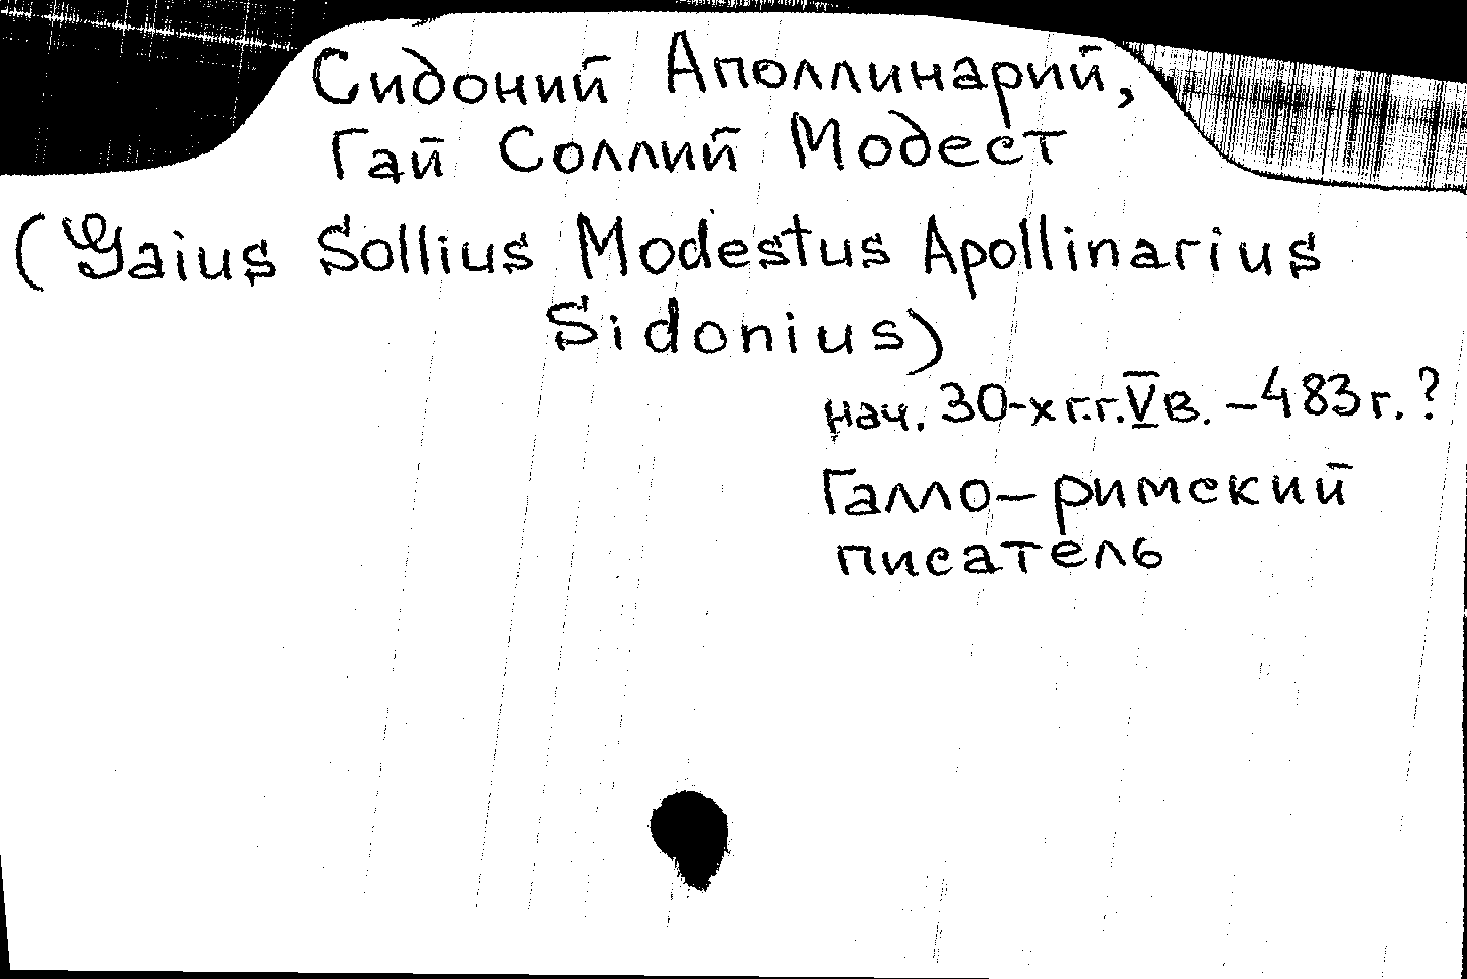 Сидоний Аполлинарий,
Гай Соллий Модест
(Gaius Sollius Modestus Apollinarius
Sidonius)
нач. 30-х г.г. V в. – 483 г. ?
Галло-римский
писатель